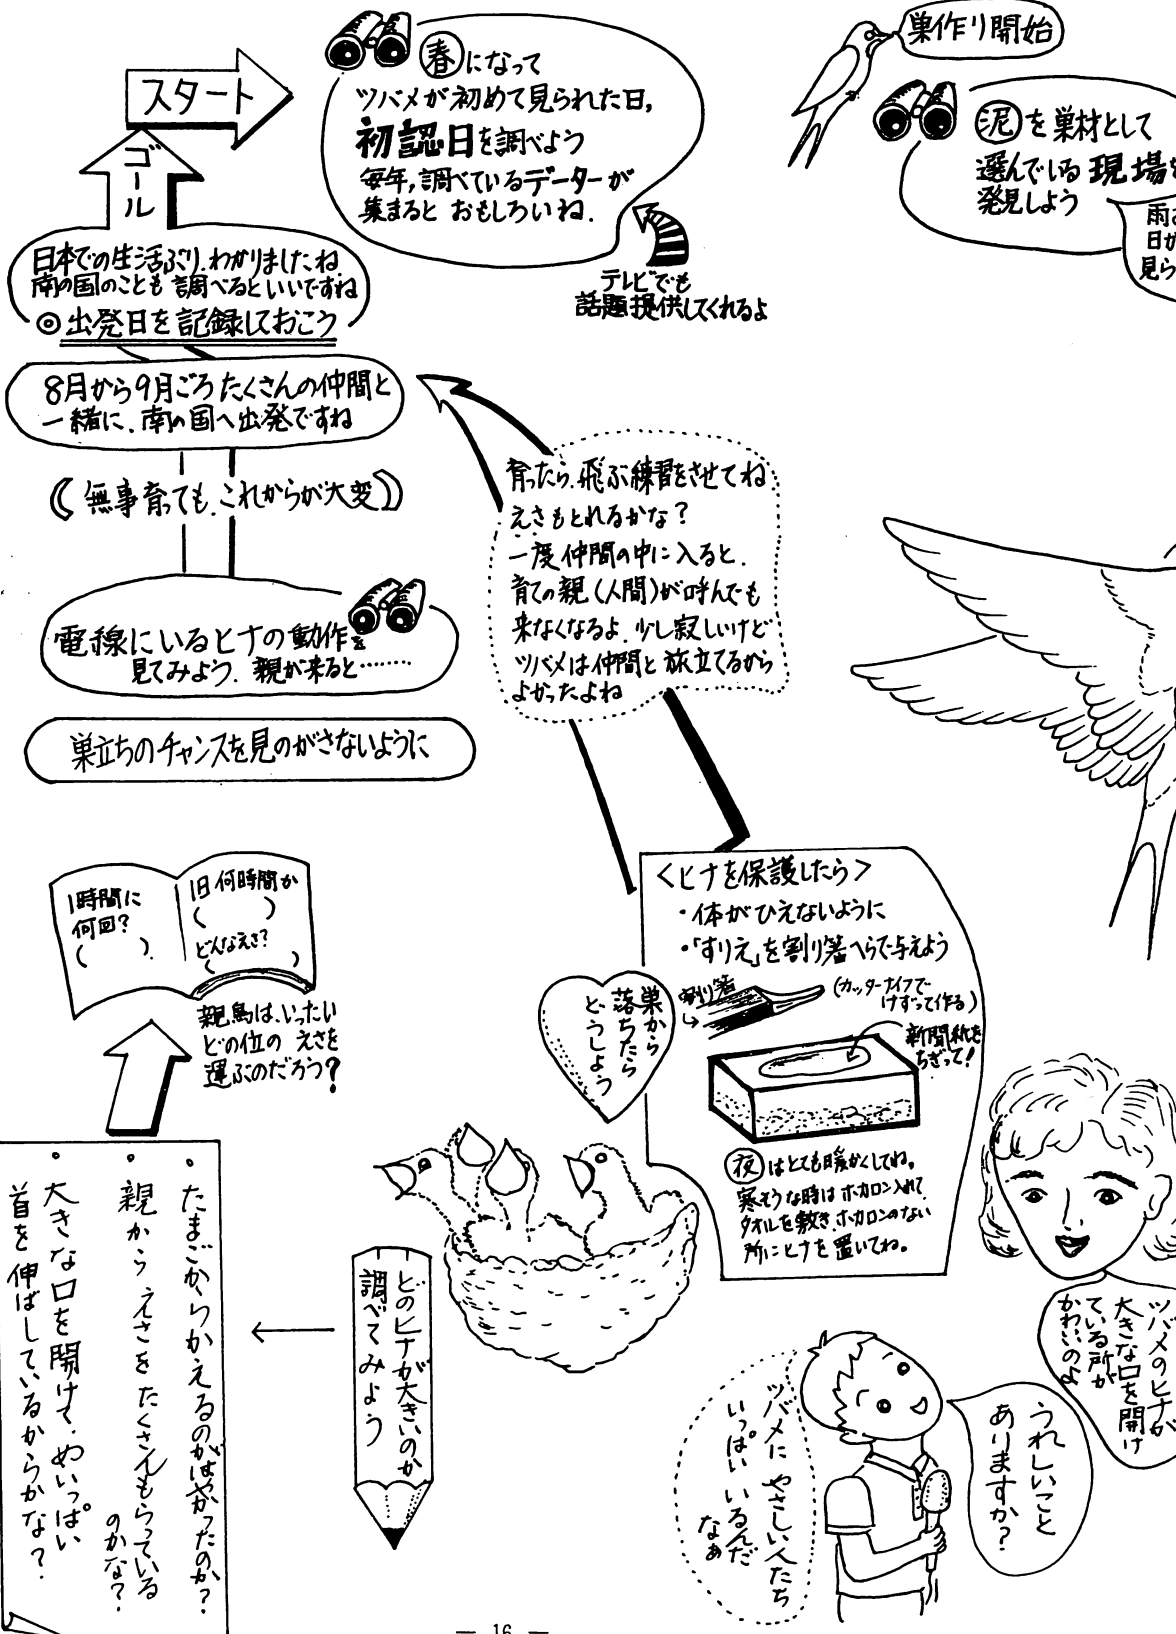 スタート
春になって
ツバメが初めて見られた日,
初認日を調べよう
毎年,調べているデーターが
集まると おもしろいね.
テレビでも
話題提供してくれるよ
巣作り開始
泥を巣材として
選んでいる現場を
発見しよう
雨
日が
見ら
ゴール
日本での生活ぶり.わかりましたね
南の国のことも 調べるといいですね
◎出発日を記録しておこう
8月から9月ごろ たくさんの仲間と
一緒に.南の国へ出発ですね
無事育っても.これからが大変
電線にいるヒナの動作を
見てみよう. 親が来ると………
巣立ちのチャンスを見のがさないように
育ったら.飛ぶ練習をさせてね
えさもとれるかな?
一度仲間の中に入ると.
育ての親(人間)が呼んでも
来なくなるよ.少し寂しいけど
ツバメは仲間と旅立てるから
よかったよね
<ヒナを保護したら>
・体がひえないように
・「すりえ」を割り箸へらで与えよう
割り箸
(カッターナイフで
けずって作る)
新聞紙を
ちぎって!
夜はとても暖かくしてね。
寒そうな時はホカロン入れて
タオルを敷き.ホカロンのない
所にヒナを置いてね。
巣から
落ちたら
どうしよう
1時間に
何回?
( )
1日何時間か
( )
どんなえさ?
( )
親鳥は、いったい
どの位の えさを
運ぶのだろう?
どのヒナが大きいのか
調べてみよう
・たまごからかえるのがはやかったのか?
・親からえさをたくさんもらっている
のかな?
・大きな口を開けて.めいっぱい
首を伸ばしているからかな?
ツバメのヒナが
大きな口を開け
ている所が
かわいいのよ
うれしいこと
ありますか?
ツバメに やさしい人たち
いっぱい いるんだ
なぁ
— 16 —